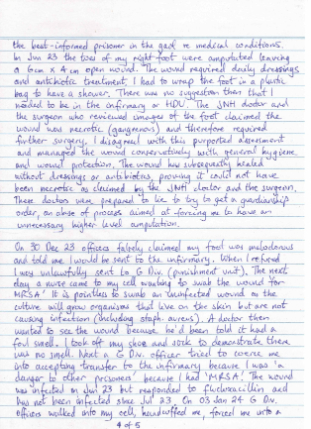 the best-informed prisoner in the gaol re medical conditions.
In Jun 23 the toes of my right foot were amputated leaving
a 6cm x 4cm open wound. The wound required daily dressings
and antibiotic treatment. I had to wrap the foot in a plastic
bag to have a shower. There was no suggestion then that I
needed to be in the infirmary or HDU. The JNH doctor and
the surgeon who reviewed images of the foot claimed the
wound was necrotic (gangrenous) and therefore required
further surgery. I disagreed with this purported assessment
and managed the wound conservatively with general hygiene
and wound protection. The wound has subsequently healed
without dressings or antibiotics, proving it could not have
been necrotic as claimed by the JNH doctor and the surgeon.
These doctors were prepared to lie to try to get a guardianship
order, an abuse of process aimed at forcing me to have an
unnecessary higher level amputation.
On 30 Dec 23 officers falsely claimed my foot was malodorous
and told me I would be sent to the infirmary. When I refused
I was unlawfully sent to G Div (punishment unit). The next
day a nurse came to my cell wanting to swab the wound for
MRSA. It is pointless to swab an uninfected wound as the
culture will grow organisms that live on the skin but are not
causing infection (including staph. aureus). A doctor then
wanted to see the wound because he'd been told it had a
foul smell. I took off my shoe and sock to demonstrate there
was no smell. Next a G Div. officer tried to coerce me
into accepting transfer to the infirmary because I was 'a
danger to other prisoners' because I had 'MRSA'. The wound
was infected in Jun 23 but responded to flucloxacillin and
has not been infected since Jul 23. On 03 Jan 24 G Div.
officers walked into my cell, handcuffed me, forced me into a
4 of 5